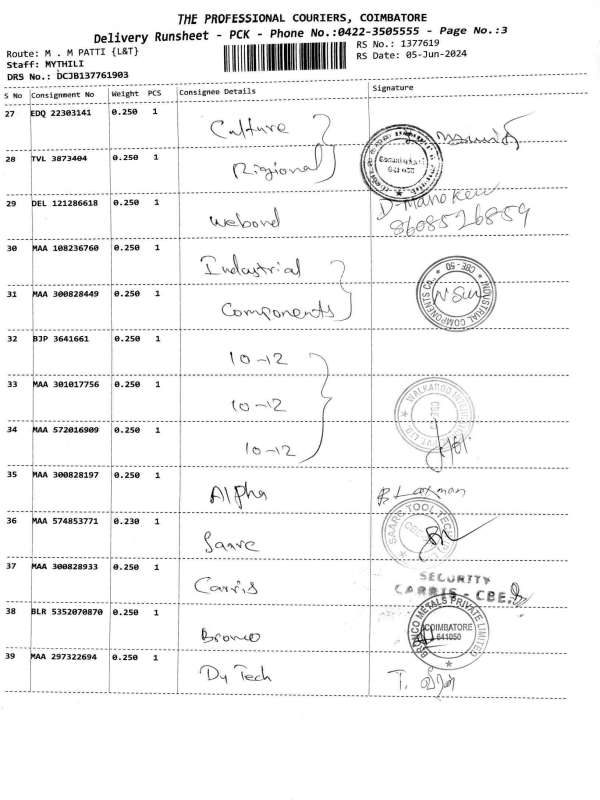 THE PROFESSIONAL COURIERS, COIMBATORE
Delivery Runsheet - PCK - Phone No.:0422-3505555 - Page No.:3
Route: M . M PATTI {L&T}
RS No.: 1377619
Staff: MYTHILI
RS Date: 05-Jun-2024
DRS No.: DCJB137761903
S No Consignment No Weight PCS Consignee Details Signature
27 EDQ 22303141 0.250 1 Culture
28 TVL 3873404 0.250 1 Rigional
29 DEL 121286618 0.250 1 Webond D-Manoken
8608526859
30 MAA 108236760 0.250 1 Industrial
31 MAA 300828449 0.250 1 Components
INDUSTRIAL COMPONENTS Co., * CBE - 50 *
32 BJP 3641661 0.250 1 10-12
33 MAA 301017756 0.250 1 10-12
34 MAA 572016909 0.250 1 10-12
35 MAA 300828197 0.250 1 Alpha B Laxman
36 MAA 574853771 0.230 1 Saarc
SAARC TOOL TECH
37 MAA 300828933 0.250 1 Carris
SECURITY
CARRIS - CBE.
38 BLR 5352070870 0.250 1 Bronco
BRONCO METALS PRIVATE LIMITED
COIMBATORE
641050
39 MAA 297322694 0.250 1 Dy Tech T.